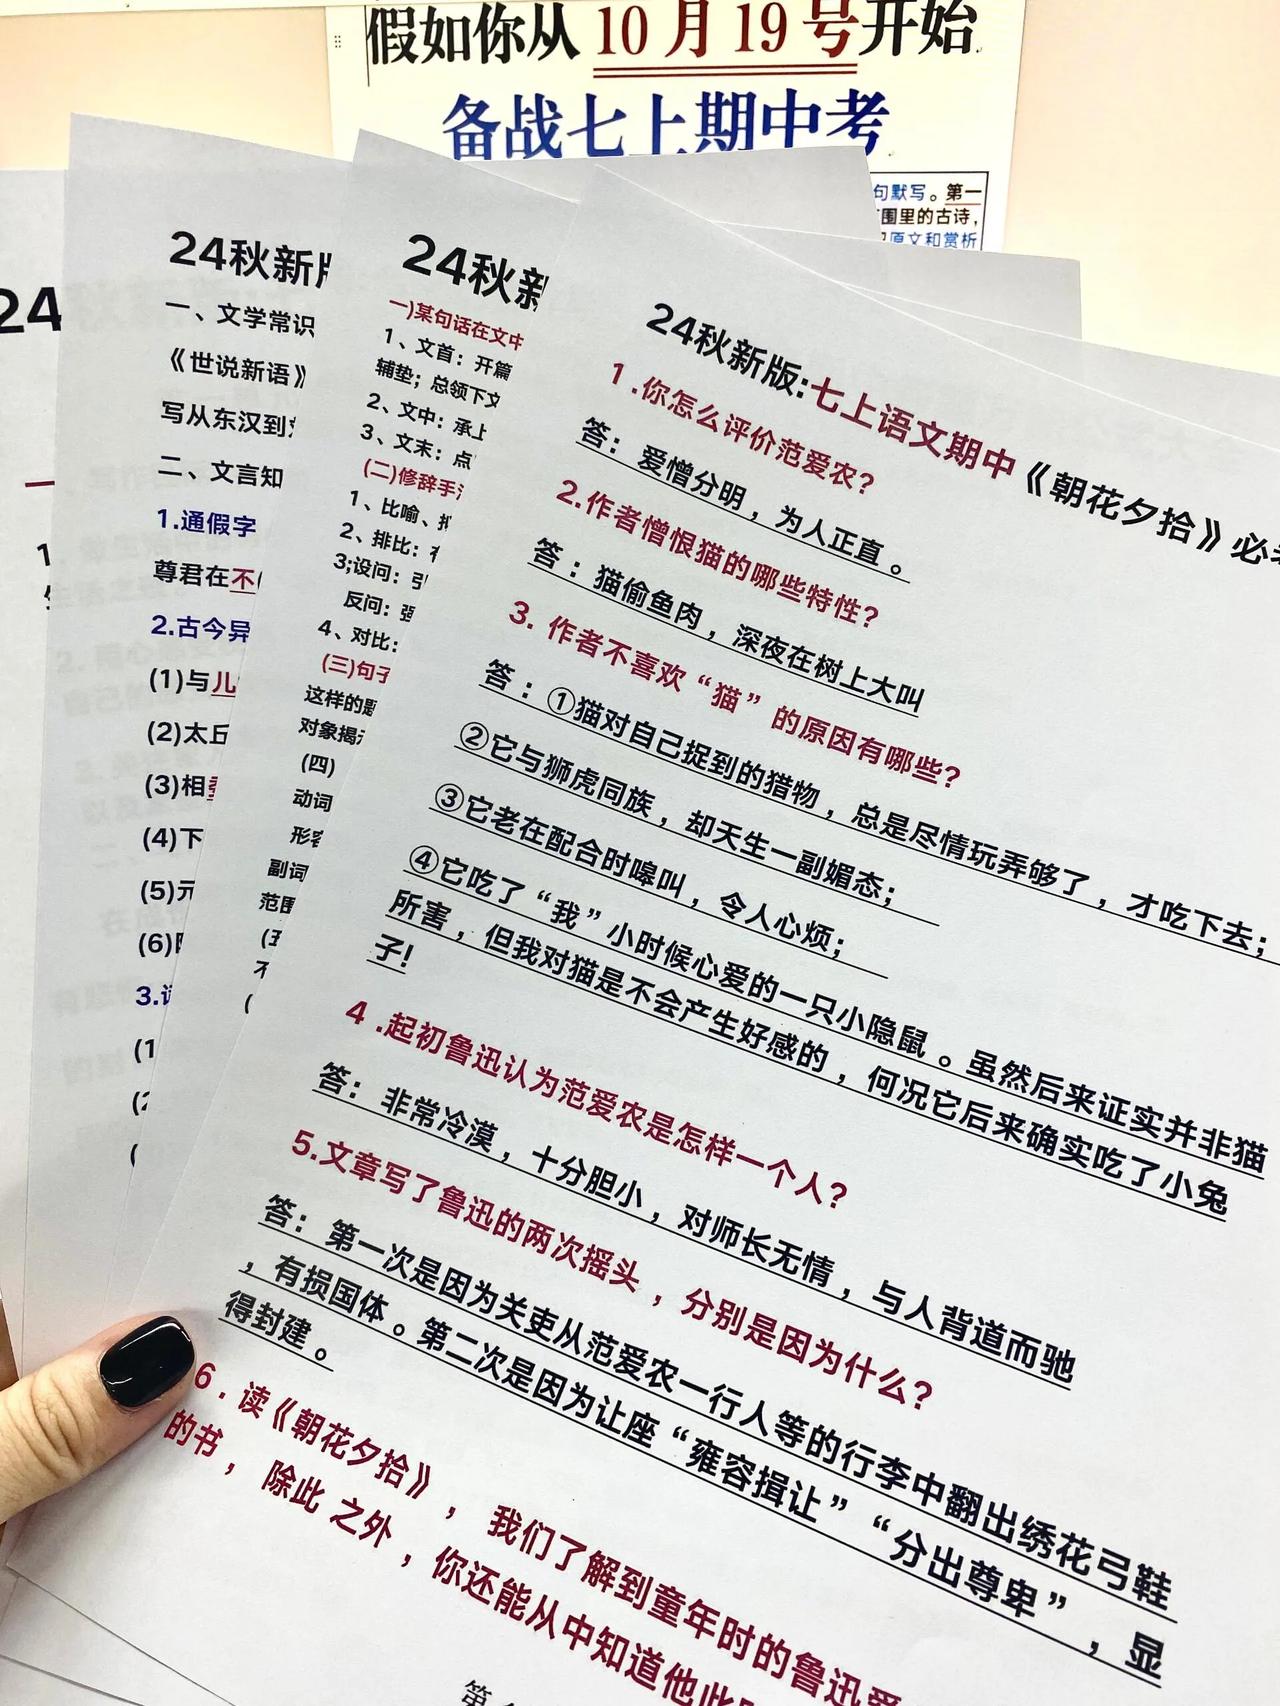 假如你从10月19号开始
备战七上期中考
句默写。第一
围里的古诗，
原文和赏析
24
一
1
24秋新
一、文学常识
《世说新语》
写从东汉到
二、文言知
1.通假字
尊君在不
2.古今异
(1)与儿
(2)太丘
(3)相委
(4)下
(5)元
(6)
3.
(1
(2
(
24秋新
一)某句话在文中
1、文首：开篇
辅垫；总领下文
2、文中：承上
3、文末：点
(二)修辞手
1、比喻、
2、排比：
3;设问：引
反问：强
4、对比：
(三)句子
这样的题
对象揭
(四)
动词
形容
副词
范围
(五
不
(
24秋新版:七上语文期中《朝花夕拾》必考
1.你怎么评价范爱农?
答：爱憎分明，为人正直。
2.作者憎恨猫的哪些特性?
答：猫偷鱼肉，深夜在树上大叫
3. 作者不喜欢“猫”的原因有哪些?
答：①猫对自己捉到的猎物，总是尽情玩弄够了，才吃下去；
②它与狮虎同族，却天生一副媚态；
③它老在配合时嗥叫，令人心烦；
④它吃了“我”小时候心爱的一只小隐鼠。虽然后来证实并非猫
所害，但我对猫是不会产生好感的，何况它后来确实吃了小兔
子!
4.起初鲁迅认为范爱农是怎样一个人?
答：非常冷漠，十分胆小，对师长无情，与人背道而驰
5.文章写了鲁迅的两次摇头，分别是因为什么?
答：第一次是因为关吏从范爱农一行人等的行李中翻出绣花弓鞋
，有损国体。第二次是因为让座“雍容揖让”“分出尊卑”，显
得封建。
6.读《朝花夕拾》，我们了解到童年时的鲁迅爱
的书，除此 之外，你还能从中知道他此
第